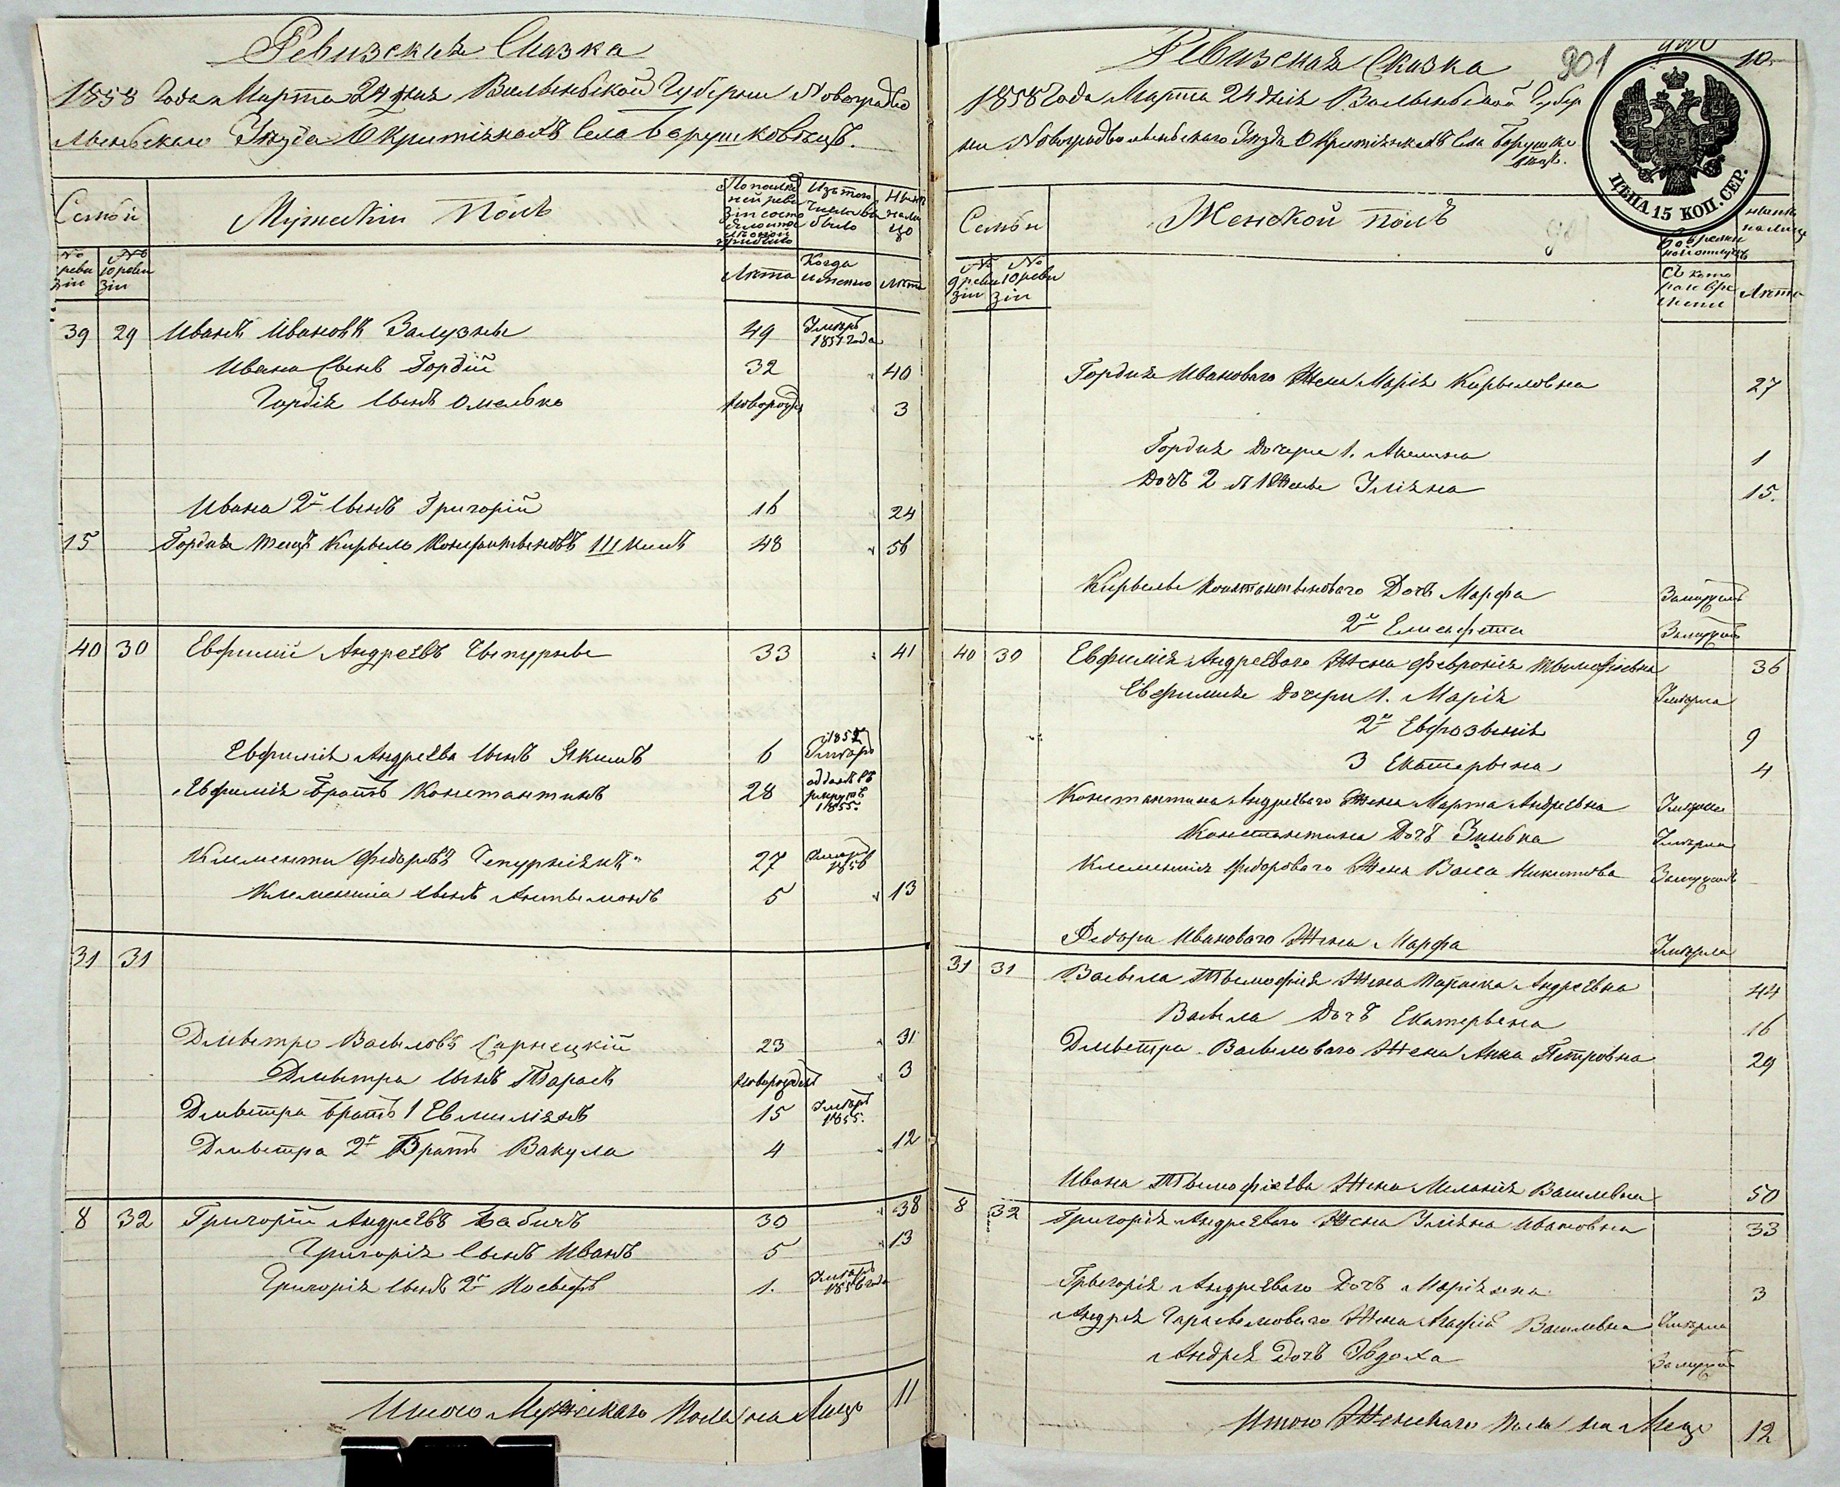 Ревизская Сказка
1858 Года Марта 24 дня Волыньской Губернии Новоградво
лыньскаго Уезда О Критянахъ Села Борушковъцъ.
Семьи
Мужескій Полъ
По последней ревизіи состояло и после оной прибыло
Изъ того числа выбыло
Ныне на лицо
№ ревизіи
№ 10 ревизіи
Лета
Когда именно
Лета
39 29 Иванъ Ивановъ Залузны 49 Умеръ 1851 года
Ивана Сынъ Гордій 32 40
Гордія Сынъ Омелько Новорожд 3
Ивана 2й Сынъ Григорій 16 24
15 Гордія тещъ Кирыло Константыновъ 48 56
40 30 Евфимій Андреевъ Чепурны 33 41
Евфимія Андреева Сынъ Якимъ 6 1852 Умеръ
Евфимія Братъ Константинъ 28 отданъ въ рекруты 1855.
Клементи Федоровъ Чепурнякъ 27 Умеръ 1856
Клементія Сынъ Антымонъ 5 13
31 31
Дмытро Васылевъ Сарнецкій 23 31
Дмытра Сынъ Тарасъ Новорожден 3
Дмытра братъ 1 Евмиліянъ 15 Умеръ 1855.
Дмытра 2й Братъ Вакула 4 12
8 32 Григорій Андреевъ Бабичъ 30 38
Григорія Сынъ Иванъ 5 13
Григорія Сынъ 2й Иосыфъ 1. Умеръ 1856 года
Итого Мужескаго Пола на Лицо 11
Ревизская Сказка
901
10.
1858 Года Марта 24 дня Волыньской Губер
нии Новоградволыньскаго Уезда О Критянахъ Села Борушко
вцахъ.
ЦѢНА 15 КОП. СЕР.
Семьи
Женской полъ
Во временной отлучке
ныне на лице
№ 9 ревизіи
№ 10 ревизіи
Съ которого времени
Лета
Гордия Иванового Жена Марія Кирыловна 27
Гордия Дочери 1. Акелина 1
Дочь 2 Уліяна 15.
Кирылы Константынового Дочь Марфа Замужемъ
2я Елисафета Замужемъ
40 30 Евфимія Андреевого Жена Февронія Тымофіевна 36
Евфимия Дочери 1. Марія Умерла
2я Евфрозынія 9
3 Екатерына 4
Константина Андреевого Жена Марта Андреевна Умерла
Константина Дочь Зинька Умерла
Клементія Федорового Жена Васса Никитова Замужемъ
Федора Иванового Жена Марфа Умерла
31 31 Васыла Тымофія Жена Параска Андреевна 44
Васыла Дочь Екатерына 16
Дмытра Васылевого Жена Анна Петровна 29
Ивана Тымофіева Жена Меланія Васылевна 50
8 32 Григорія Андреевого Жена Уліяна Ивановна 33
Грыгорія Андреевого Дочь Маріяна 3
Андрея Герасымового Жена Агафія Васылевна Умерла
Андрея Дочь Эвдоха Замужемъ
Итого Женскаго Пола на Лице 12